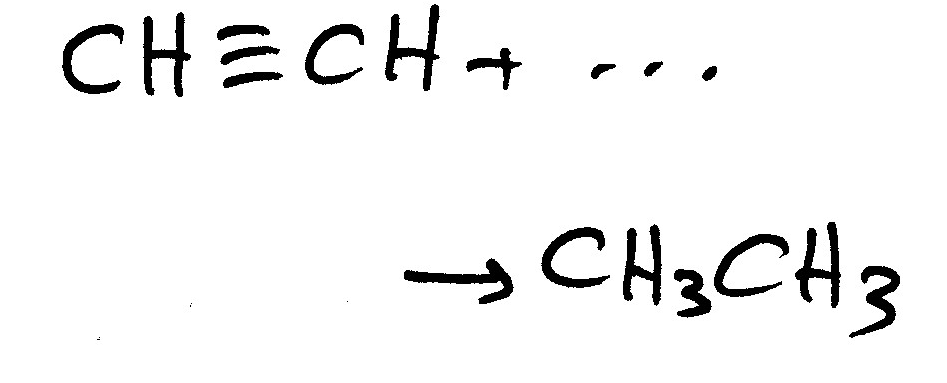 CH≡CH + ...
→ CH₃CH₃